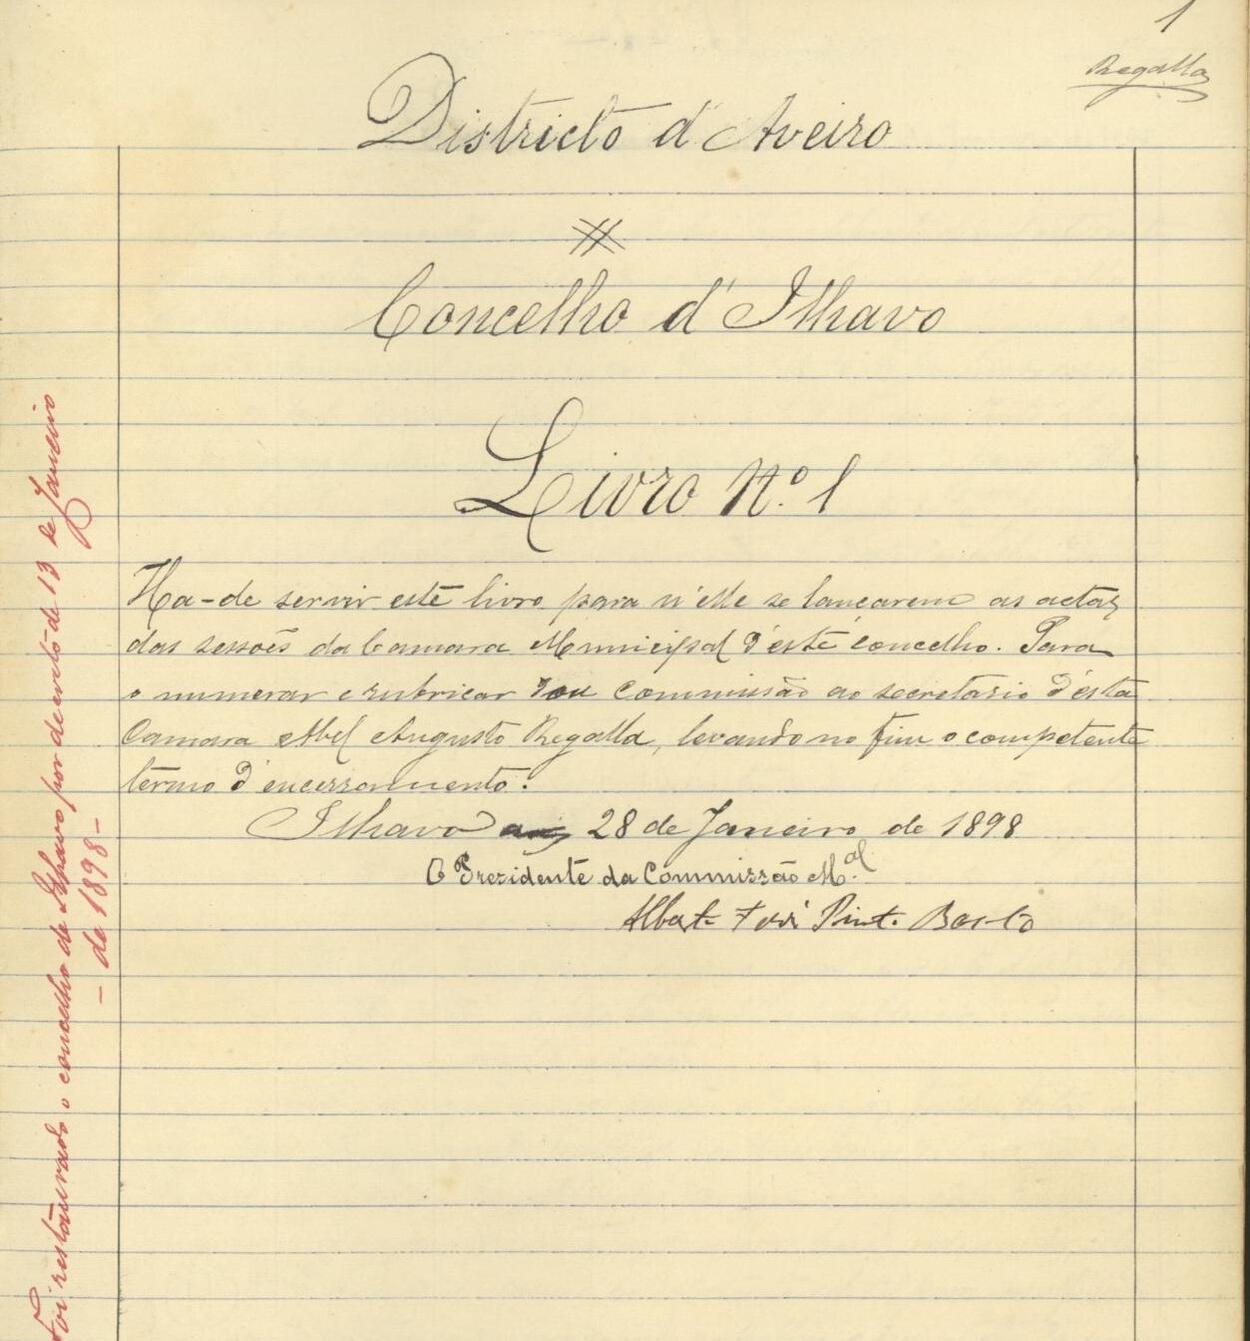 1
Regalla
Districto d'Aveiro
Concelho d'Ilhavo
Livro Nº 1
Ha-de servir este livro para n'elle se lançarem as actas
das sessões da Camara Municipal d'este concelho. Para
o numerar e rubricar dou commissão ao secretario d'esta
Camara Abel Augusto Regalla, levando no fim o competente
termo d'encerramento.
Ilhavo 28 de Janeiro de 1898
O Prezidente da Commissão M.al
Alberto Ferrª Pinto Basto
Foi restaurado o concelho de Ilhavo por decreto de 13 de Janeiro
- de 1898 -